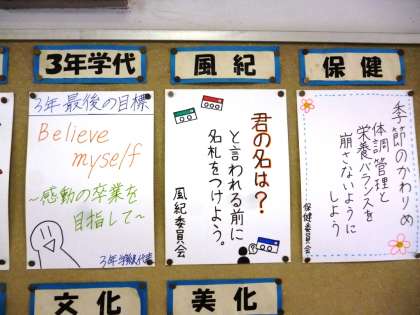 3年学代
3年 最後の目標
Believe
myself
～感動の卒業を
目指して～
3年学級代表
風紀
君の名は？
と言われる前に
名札をつけよう。
風紀委員会
保健
季節のかわりめ
体調管理と
栄養バランスを
崩さないように
しよう
保健委員会
文化
美化